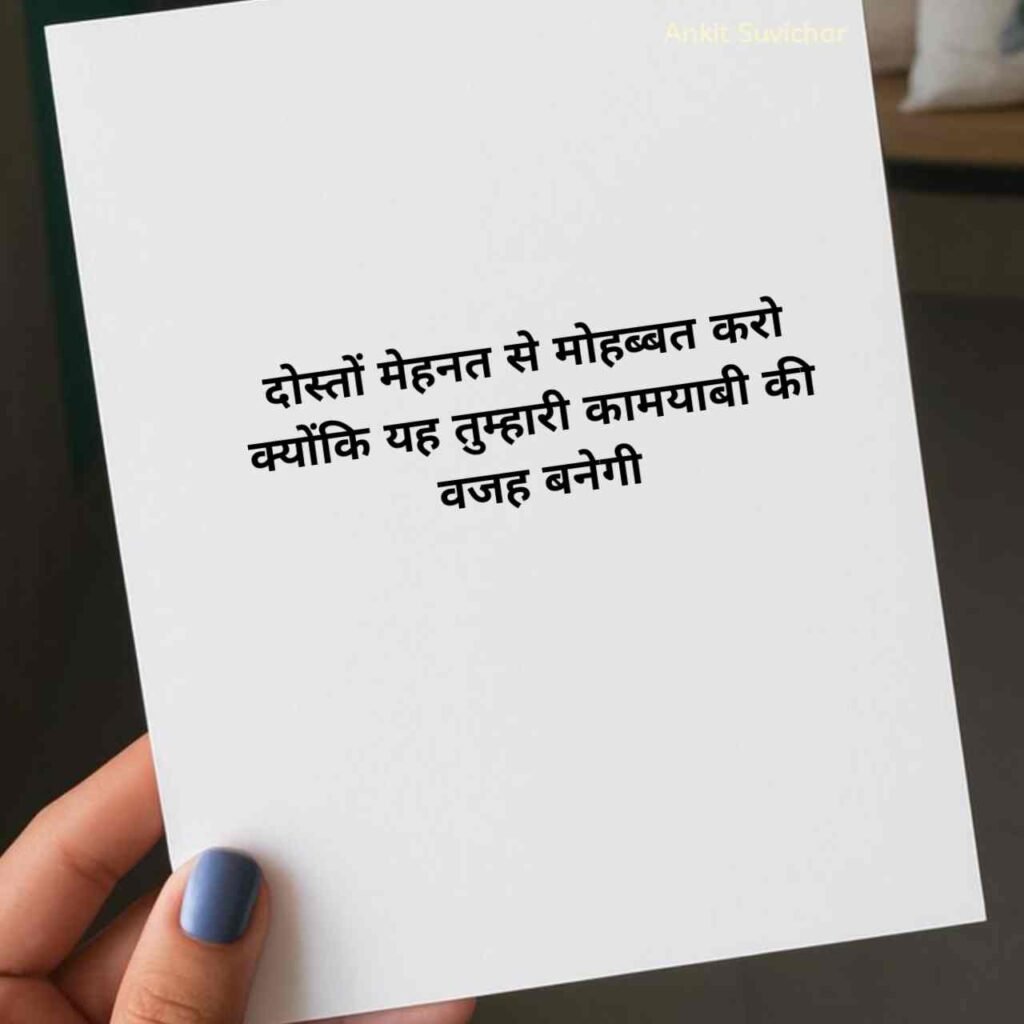 Ankit Suvichar
दोस्तों मेहनत से मोहब्बत करो
क्योंकि यह तुम्हारी कामयाबी की
वजह बनेगी